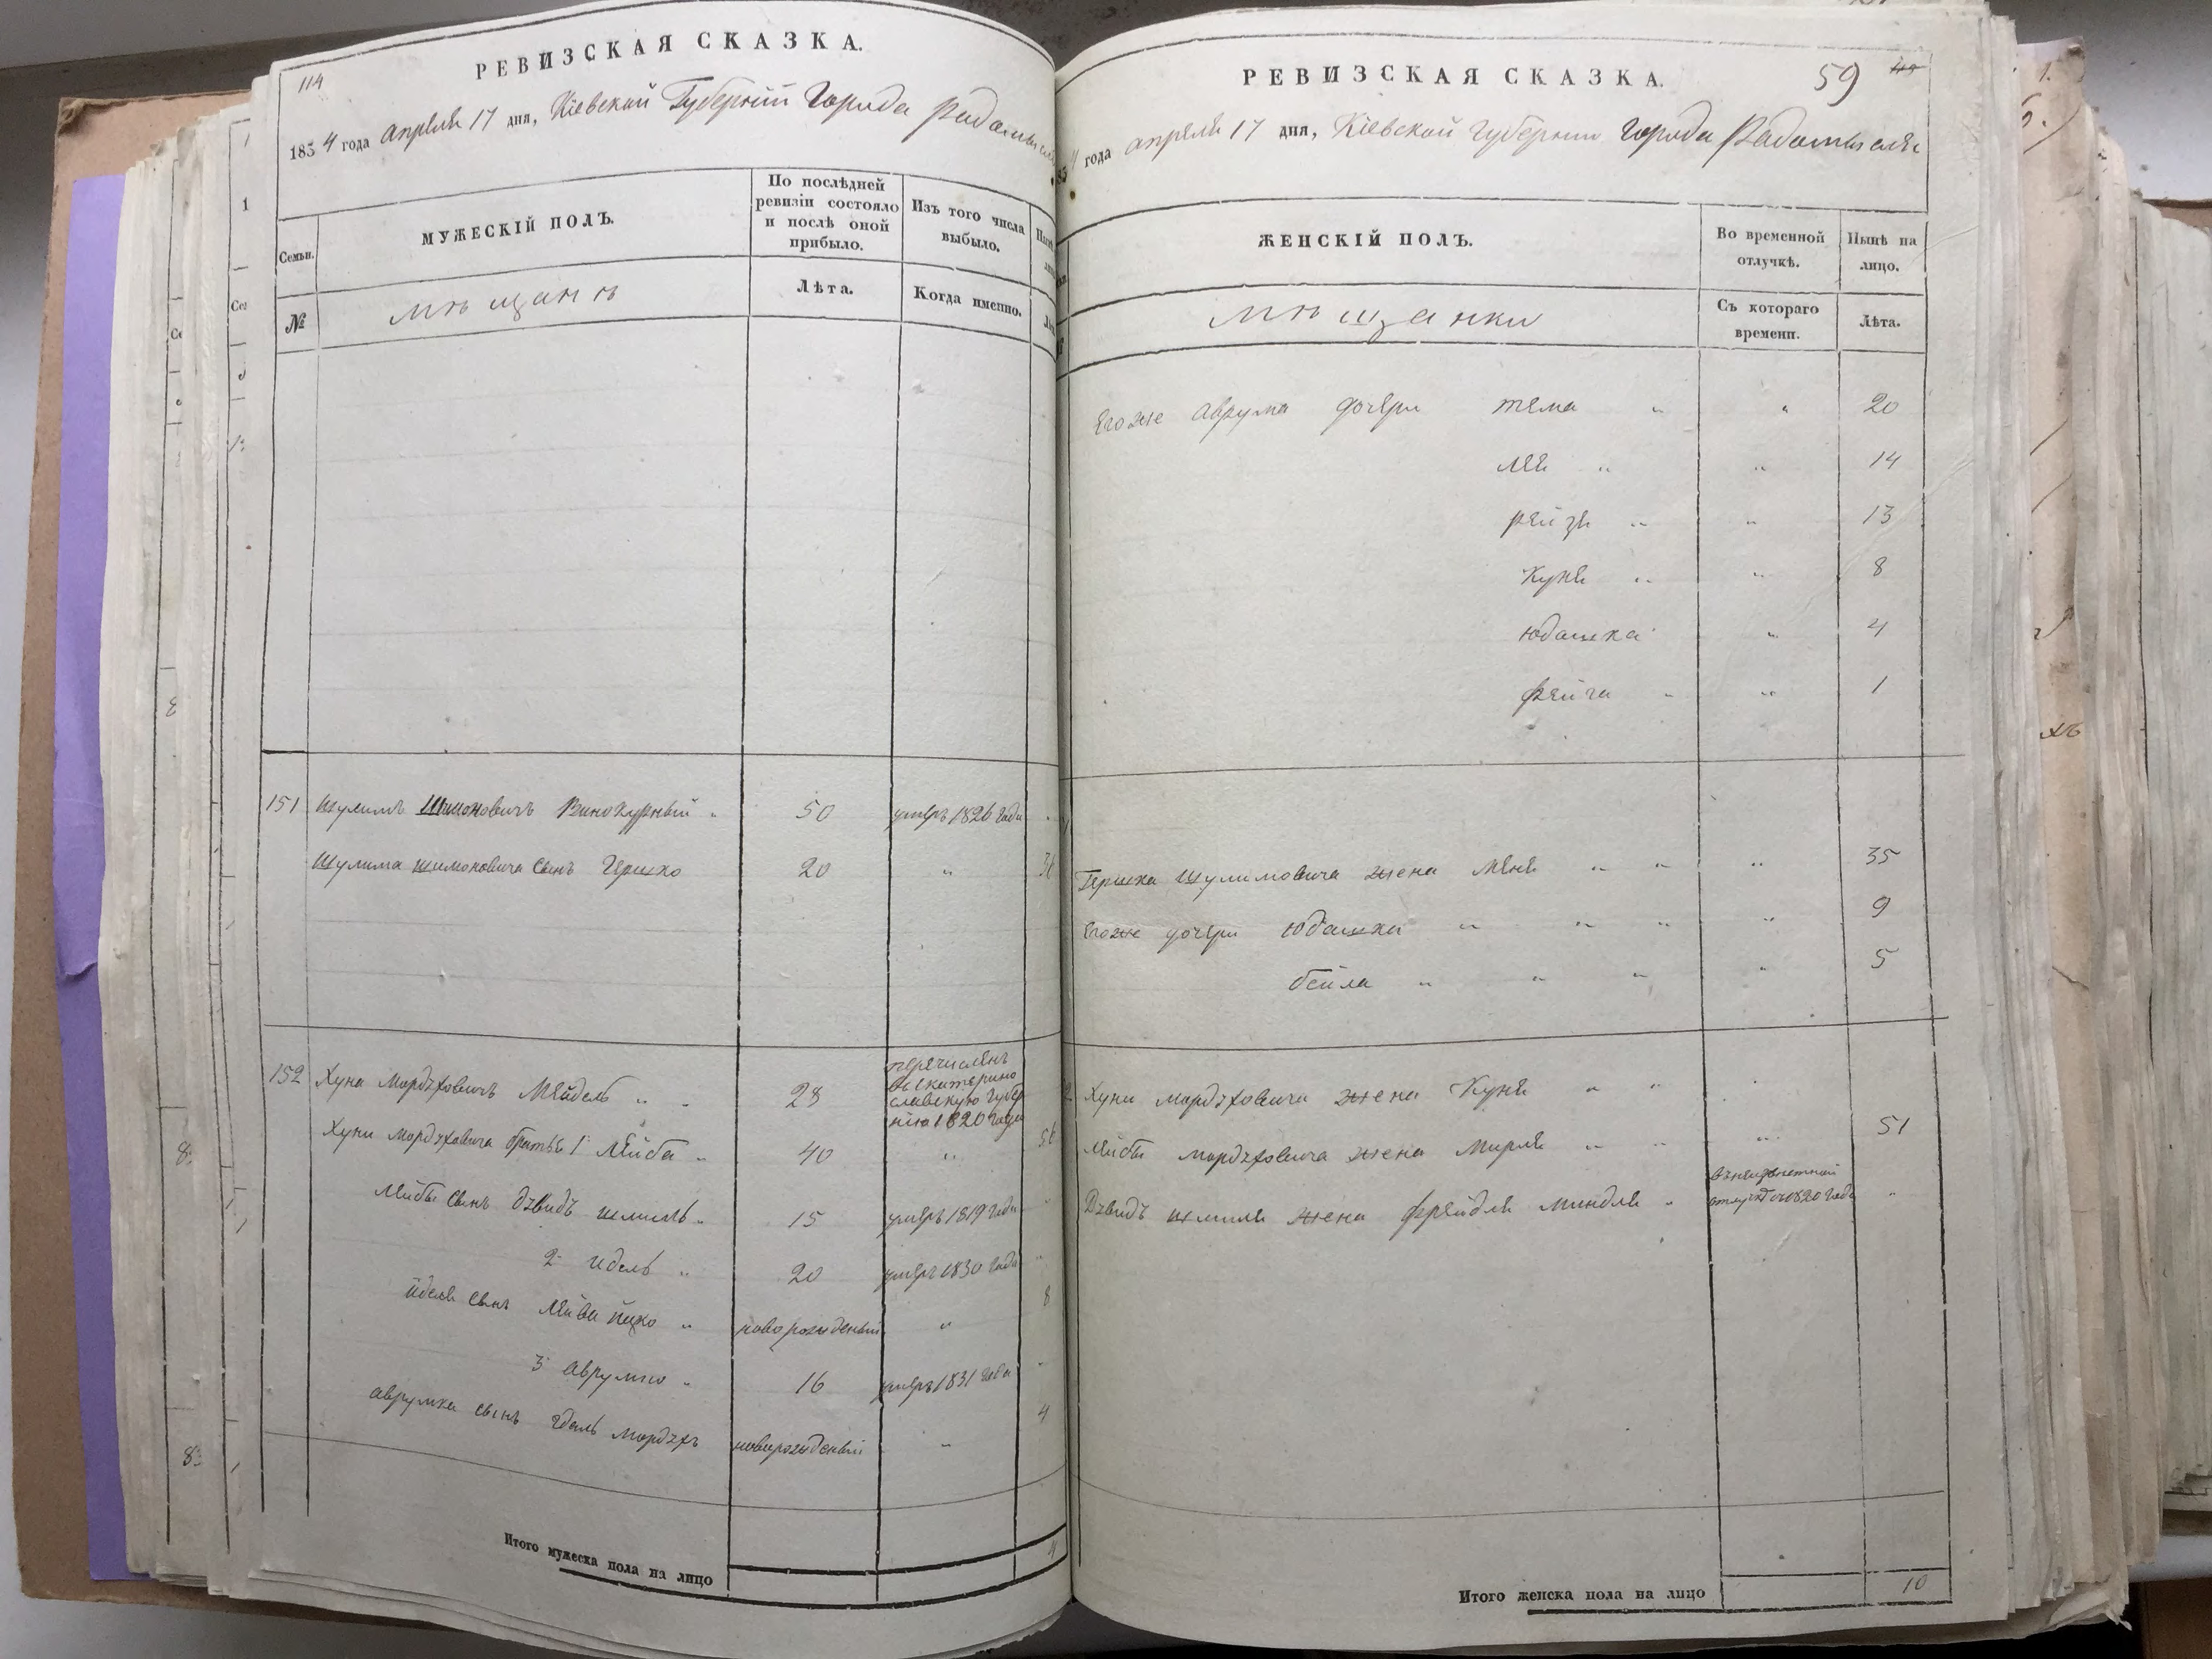 114
РЕВИЗСКАЯ СКАЗКА.
1834 года апреля 17 дня, Кіевской Губерніи Города Радомысля
Семьи.
МУЖЕСКІЙ ПОЛЪ.
По послѣдней ревизіи состояло и послѣ оной прибыло.
Изъ того числа выбыло.
№
мѣщанѣ
Лѣта.
Когда именно.
151 Шулимъ Шимоновичъ Винокурный 50 умеръ 1826 года
Шулима Шимоновича сынъ Гершко 20 "
152 Хуна Мордховичъ Мейдель " 28 перечисленъ
в Екатерино
славскую губер
нію 1820 года
Хуни Мордховича братья 1 Лейба " 40 " 56
Лейбы сынъ Дувидъ Шмиль " 15 умеръ 1819 года "
2 Идель " 20 умеръ 1830 года "
Иделя сынъ Лейба Ицко " новорожденный " 8
3 Аврумко " 16 умеръ 1831 года "
Аврумка сынъ Идель Мордхъ новорожденный " 4
Итого мужеска пола на лицо
РЕВИЗСКАЯ СКАЗКА.
59
года апреля 17 дня, Кіевской Губернии Города Радомысля
ЖЕНСКІЙ ПОЛЪ.
Во временной отлучкѣ.
Нынѣ на лицо.
мѣщанки
Съ котораго времени.
Лѣта.
Его же Аврума дочери Тема " " 20
Лея " " 14
Рейзя " " 13
Куня " " 8
Юдашка " 4
Фейга " " 1
Гершка Шулимовича жена Меня " " " 35
Его же дочери Юдашка " " " " 9
Бейла " " " " 5
Хуни Мордховича жена Куня " "
Лейбы Мордховича жена Мирля " " " 51
Дувидъ Шмиля жена Фрейдля Миндля " в неизвестной
отлучке с 1820 года "
Итого женска пола на лицо 10